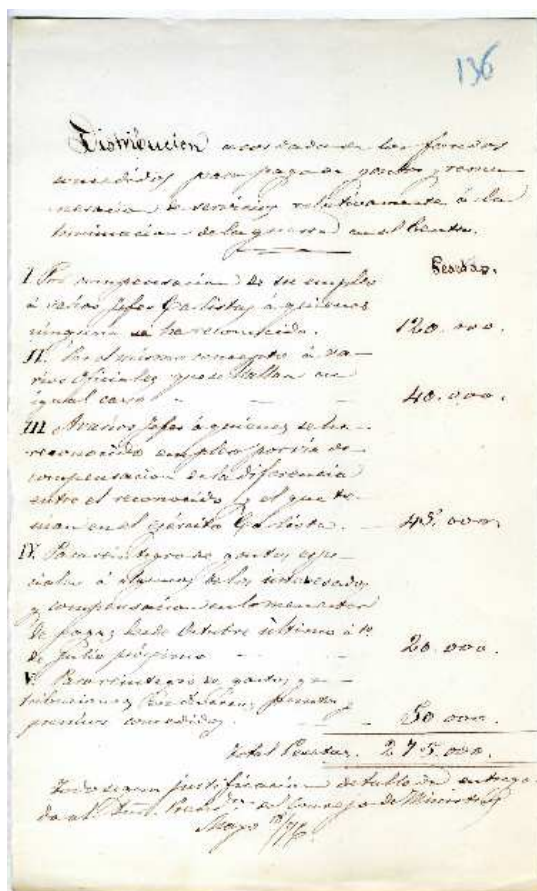 136
Distribucion acordada de los fondos
concedidos para pago de gastos y remu-
neracion de servicios relativamente á la
terminacion de la guerra en el Centro.
Pesetas.
I. Por compensacion de su empleo
á varios Jefes Carlistas á quienes
ninguno se ha reconocido. 120.000.
II. Por el mismo concepto á va-
rios Oficiales que se hallan en
igual caso - - 40.000.
III. A varios Jefes á quienes se ha
reconocido empleo por via de
compensacion de la diferencia
entre el reconocido y el que te-
nian en el ejército Carlista. - 45.000.
IV. Para reintegro de gastos espe-
ciales á algunos de los interesados
y compensacion
de pagas desde Octubre último á 1º
de Julio próximo - - 20.000.
V. Para reintegro de gastos, gra-
tificaciones
premios concedidos. - - 50.000.
Total Pesetas. 275.000.
Todo segun justificacion detallada entrega-
da al Presidente del Consejo de Ministros
Mayo /76.